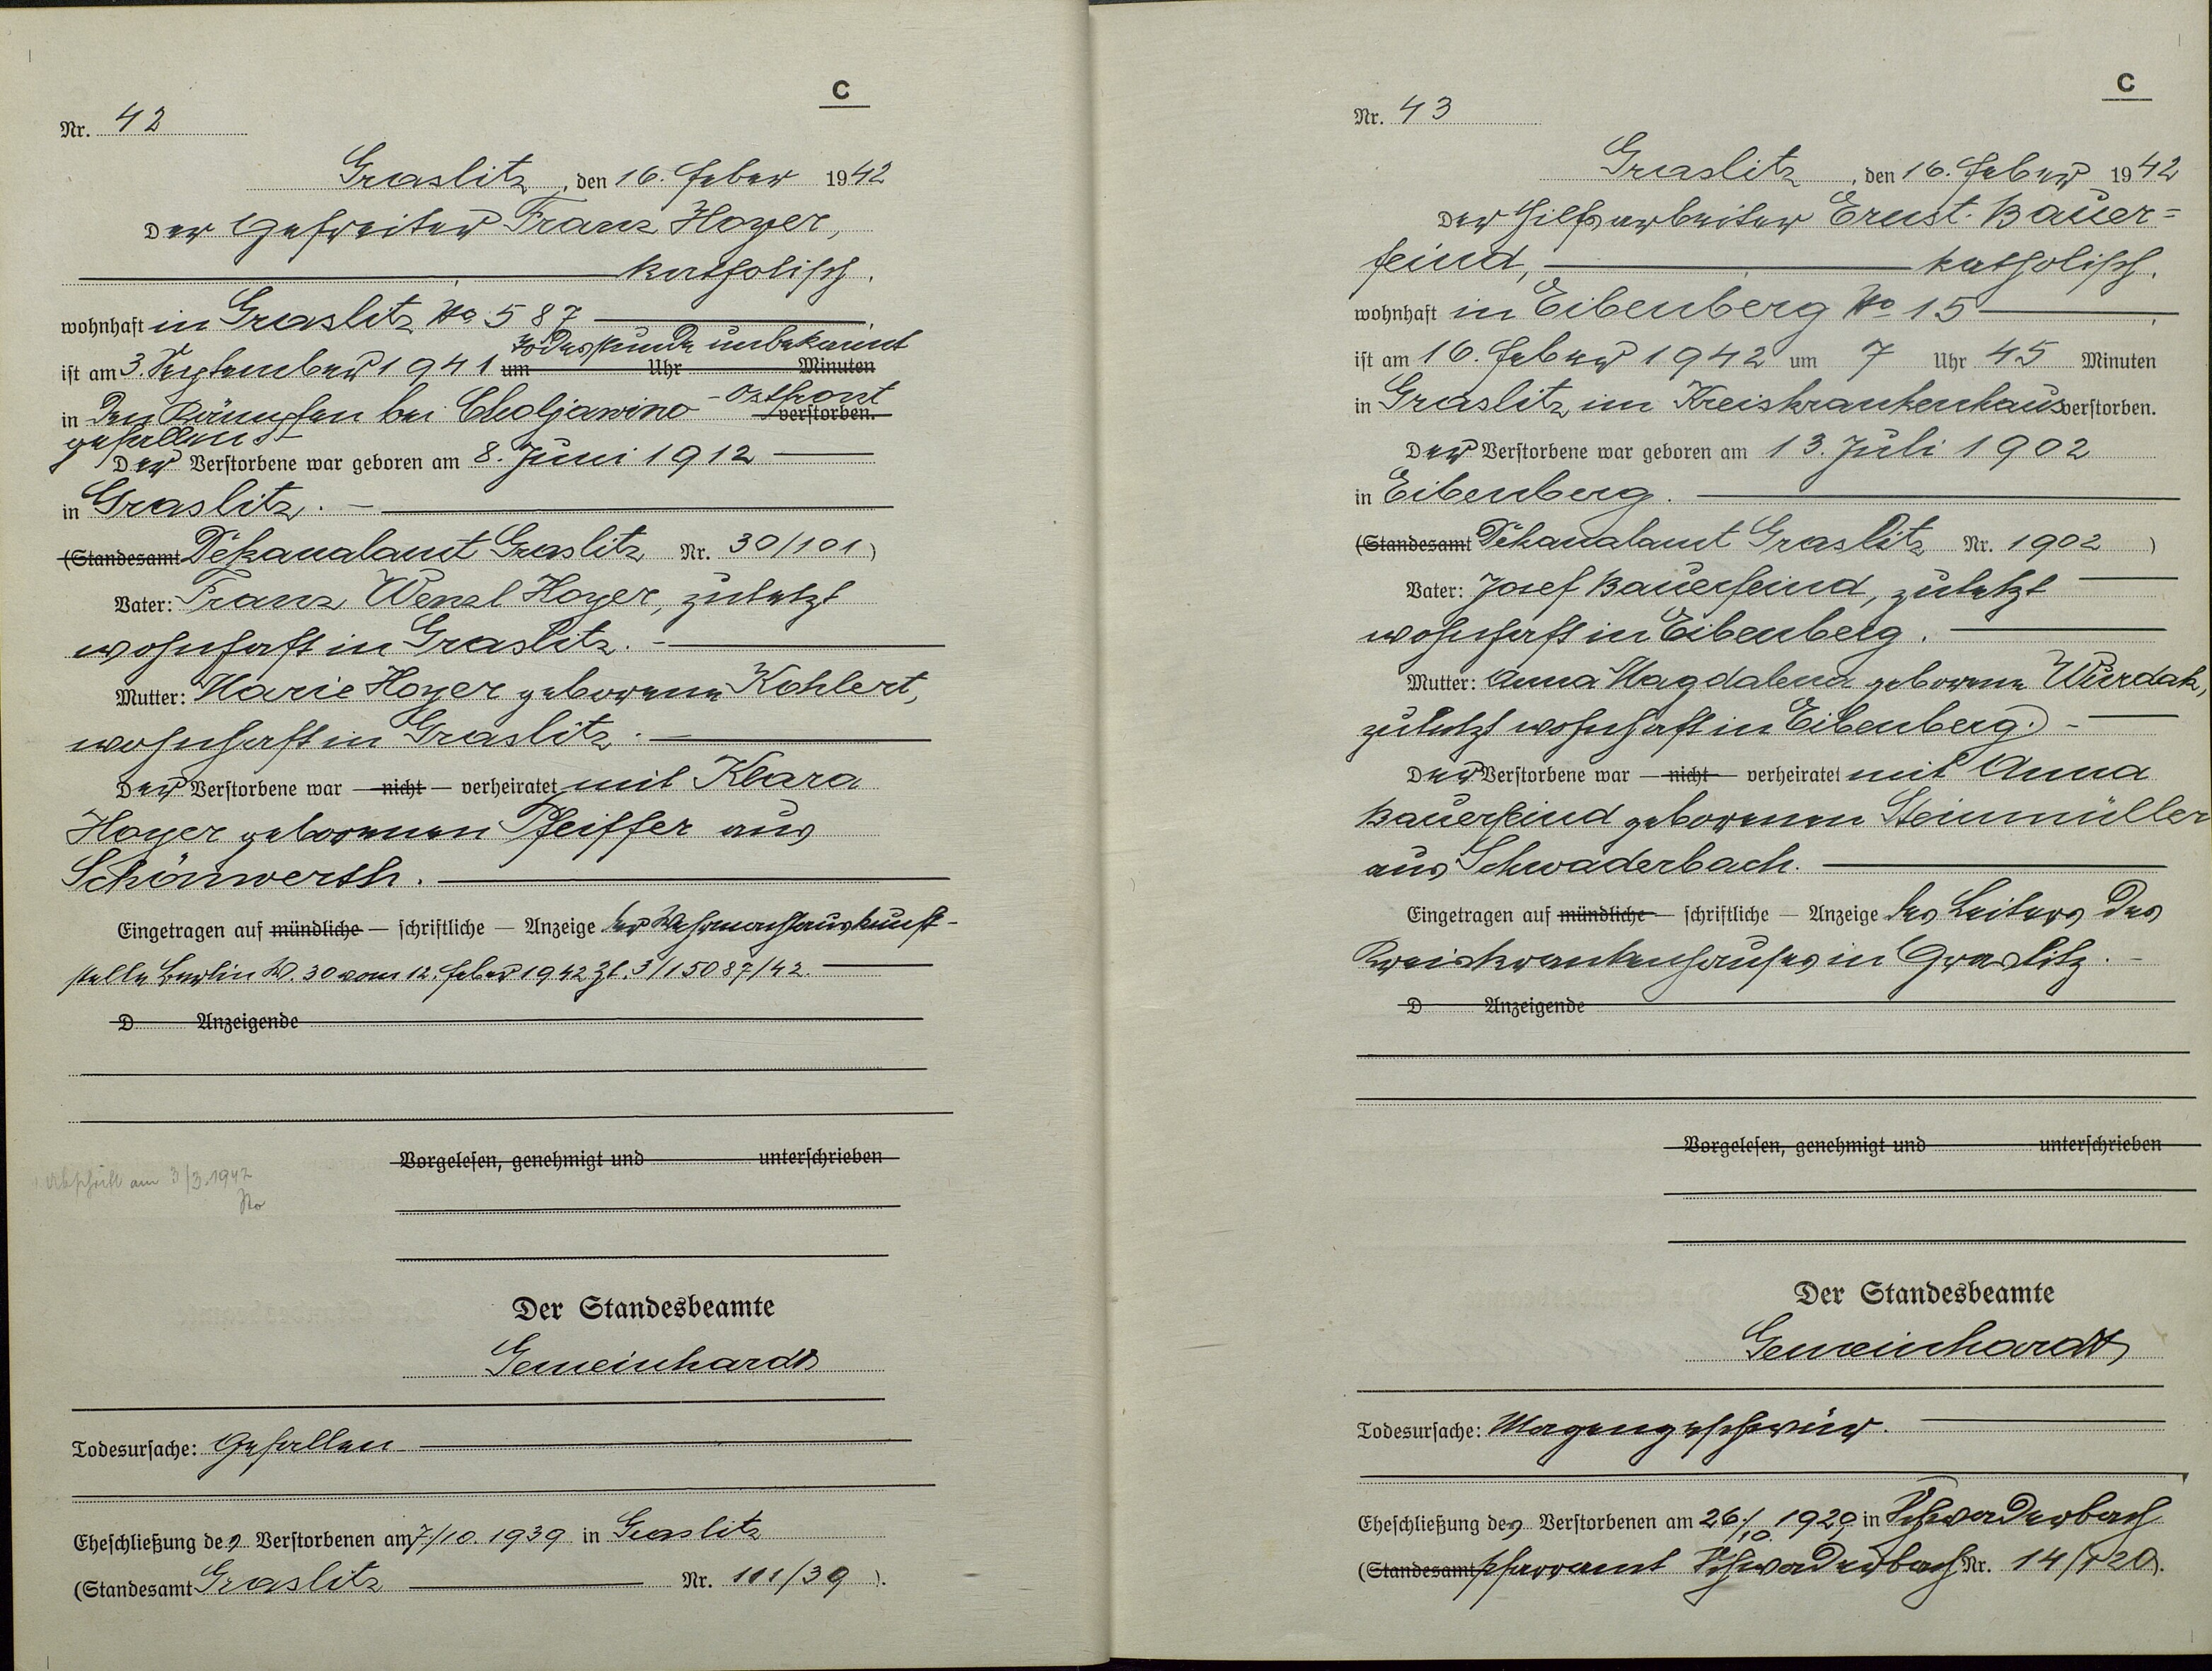 C
Nr. 42
Graslitz, den 16. Feber 1942
Der Gefreiter Franz Hoyer,
katholisch.
wohnhaft in Graslitz No 587
Todesstunde unbekannt
ist am 3. September 1941 um Uhr Minuten
in den Kämpfen bei Choljawino - Ostfront verstorben.
gefallen.
Der Verstorbene war geboren am 8. Juni 1912
in Graslitz.
(Standesamt Dekanalamt Graslitz Nr. 30/101)
Vater: Franz Wenzl Hoyer, zuletzt
wohnhaft in Graslitz.
Mutter: Marie Hoyer geborene Kohlert,
wohnhaft in Graslitz.
Der Verstorbene war — nicht — verheiratet mit Klara
Hoyer geborenen Pfeiffer aus
Schönwerth.
Eingetragen auf mündliche — schriftliche — Anzeige der Wehrmachtauskunft-
stelle Berlin W. 30 vom 12. Feber 1942 Zl. 3/15087/42.
D Anzeigende
Vorgelesen, genehmigt und unterschrieben
Abschrift am 3/3.1942
Der Standesbeamte
Gemeinhardt
Todesursache: Gefallen
Eheschließung des Verstorbenen am 7./10. 1939 in Graslitz
(Standesamt Graslitz Nr. 111/39).
C
Nr. 43
Graslitz, den 16. Feber 1942
Der Hilfsarbeiter Ernst Bauer=
feind, katholisch.
wohnhaft in Eibenberg No 15
ist am 16. Feber 1942 um 7 Uhr 45 Minuten
in Graslitz im Kreiskrankenhaus verstorben.
Der Verstorbene war geboren am 13. Juli 1902
in Eibenberg.
(Standesamt Dekanalamt Graslitz Nr. 1902)
Vater: Josef Bauerfeind, zuletzt
wohnhaft in Eibenberg.
Mutter: Anna Magdalena geborene Wurdak,
zuletzt wohnhaft in Eibenberg.
Der Verstorbene war — nicht — verheiratet mit Anna
Bauerfeind geborenen Steinmüller
aus Schwaderbach.
Eingetragen auf mündliche — schriftliche — Anzeige des Leiters des
Kreiskrankenhauses in Graslitz.
D Anzeigende
Vorgelesen, genehmigt und unterschrieben
Der Standesbeamte
Gemeinhardt
Todesursache: Magengeschwür.
Eheschließung des Verstorbenen am 26./10. 1929 in Schwaderbach
(Standesamt Pfarramt Schwaderbach Nr. 14/120).